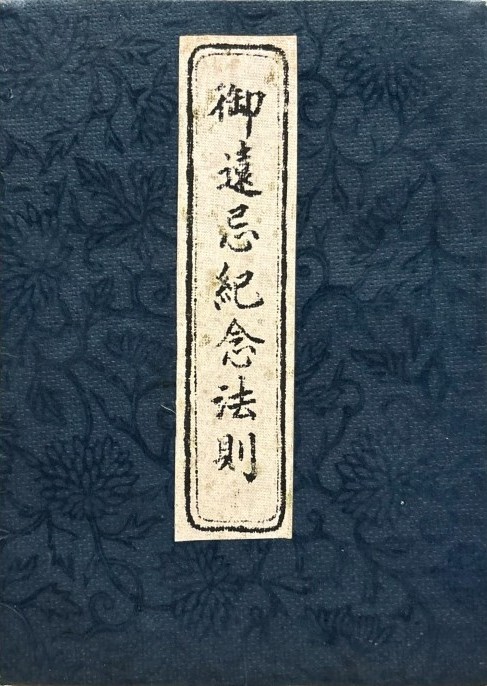 御遠忌紀念法則